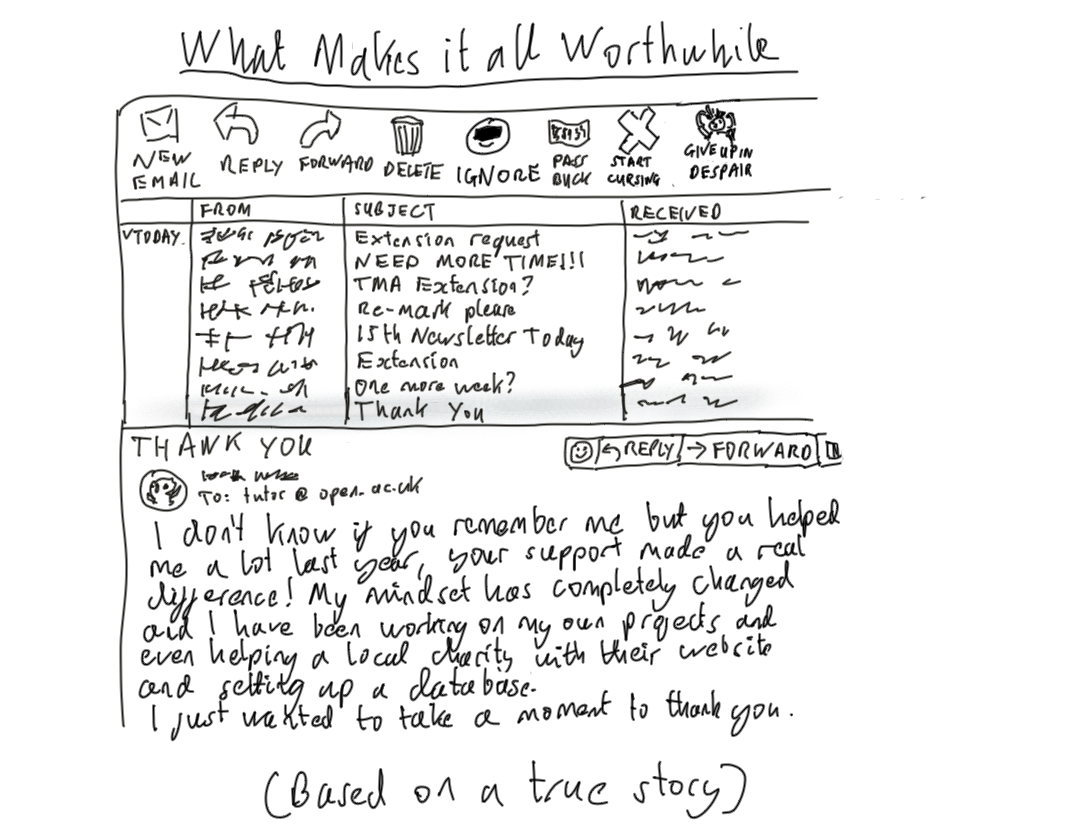 What Makes it all Worthwhile
NEW EMAIL
REPLY
FORWARD
DELETE
IGNORE
PASS BUCK
START CURSING
GIVE UP IN DESPAIR
FROM SUBJECT RECEIVED
TODAY
Extension request
NEED MORE TIME!!!
TMA Extension?
Re-mark please
15th Newsletter Today
Extension
One more week?
Thank You
THANK YOU
REPLY → FORWARD
To: tutor @ open.ac.uk
I don't know if you remember me but you helped
me a lot last year, your support made a real
difference! My mindset has completely changed
and I have been working on my own projects and
even helping a local charity with their website
and setting up a database.
I just wanted to take a moment to thank you.
(Based on a true story)